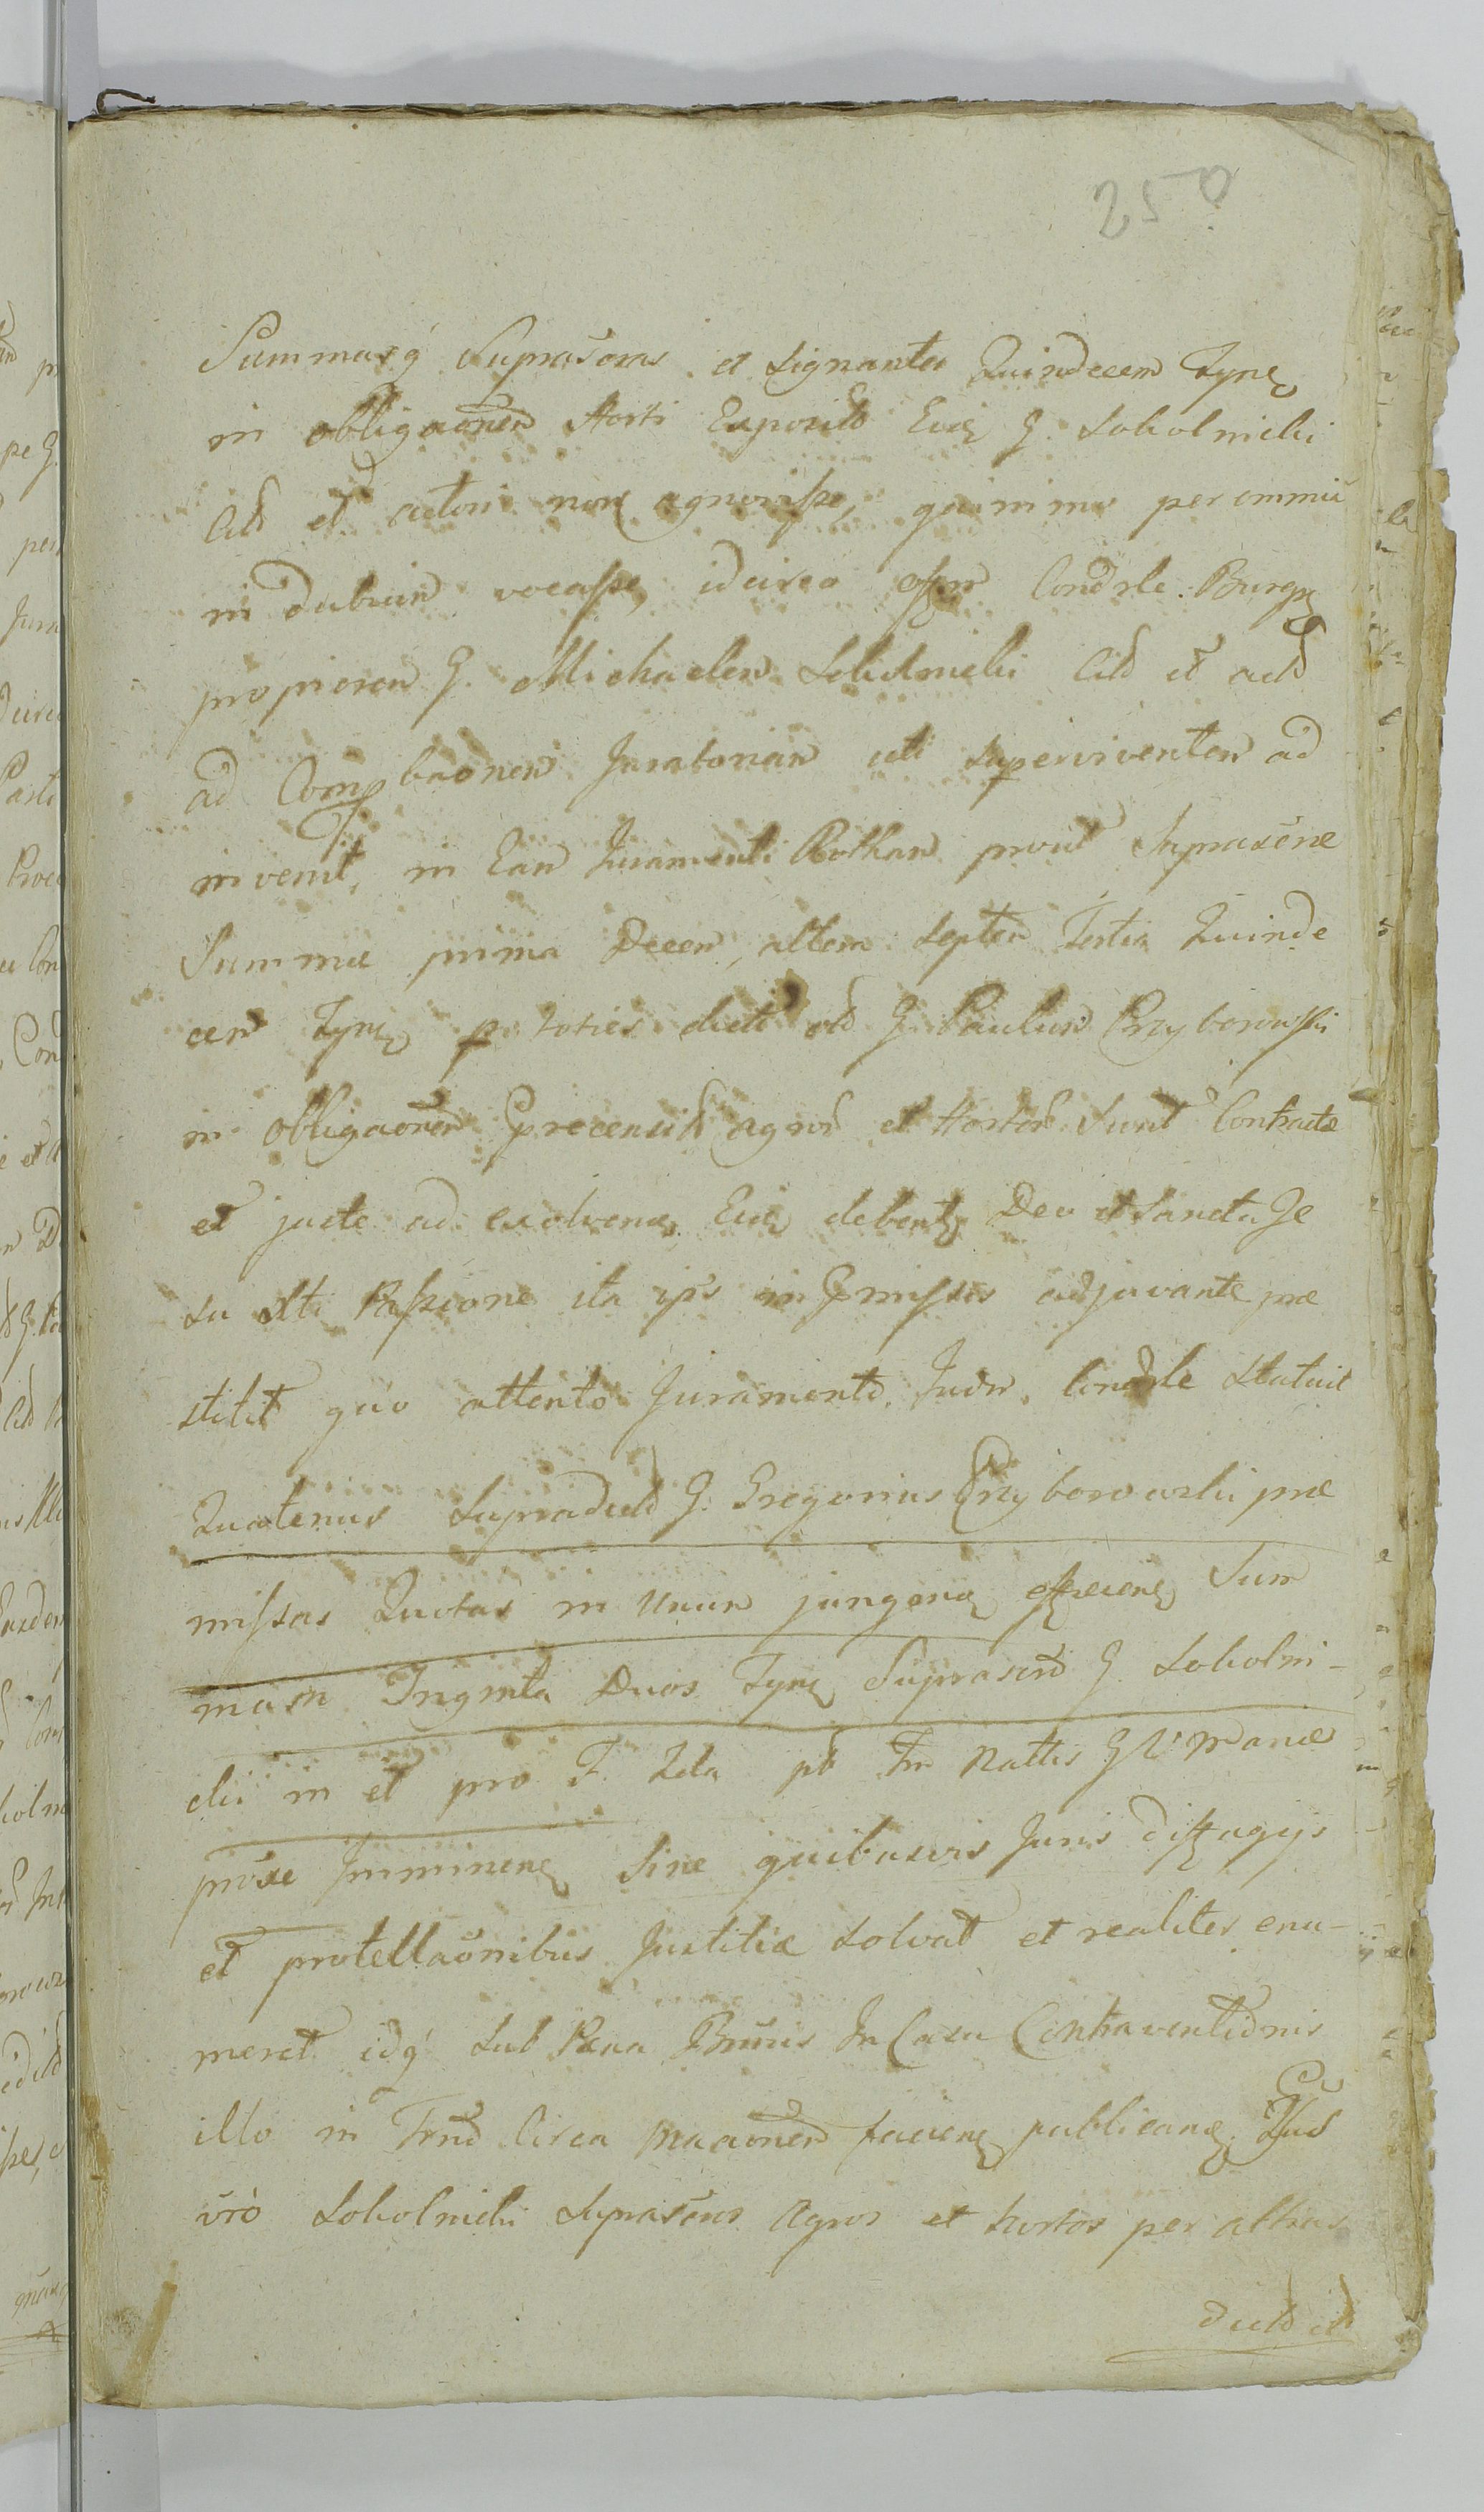 250
Summasq́ Suprascras et signanter Quindecem Tyne
in obligaonem Horti Exposit Eide G. Sokolnicki
Citd et actori non agnovisse, quinimo per omnia
in dubium vocasse, idcirco offm Condrle Burg
propiorem G. Michaelem Sokolnicki Citd et actd
ad Compbaonem Juratoriam uti superviventem ad
invenit, in Eam Juramenti Rotham prout Suprascrae
Summae prima Decem, altera Septem Tertia Quinde
cem Tyne p toties dict old G. Paulum Przyborowski
in obligaonem Precensit agror et Hortor Sunt Contractae
et juste ad exolvend Eide debentr Deo et Sancta Je
su Xti Passione ita ips in Pmissis adjuvante prae
stitit quo attento Juramento Judm Condrle Statuit
Quatenus Supradictd G. Gregorius Przyborowski prae
missas Quotas in Unum jungend efficiend Sum
mam Triginta Duos Tyne Suprascrd G. Sokolni-
cki in et pro F. Zda pt Fm Nattis G V Mariae
proxe Imminend Sine quibusvis Juris diffugijs
et protellaonibus Justitiae Solvat et realiter enu-
meret idq́ Sub Paena Bannis In Casu Contraventionis
illo in Trmo Circa maaonem faciend publicand.
vrò Sokolnicki Suprascros Agros et hortos per altius
dictd